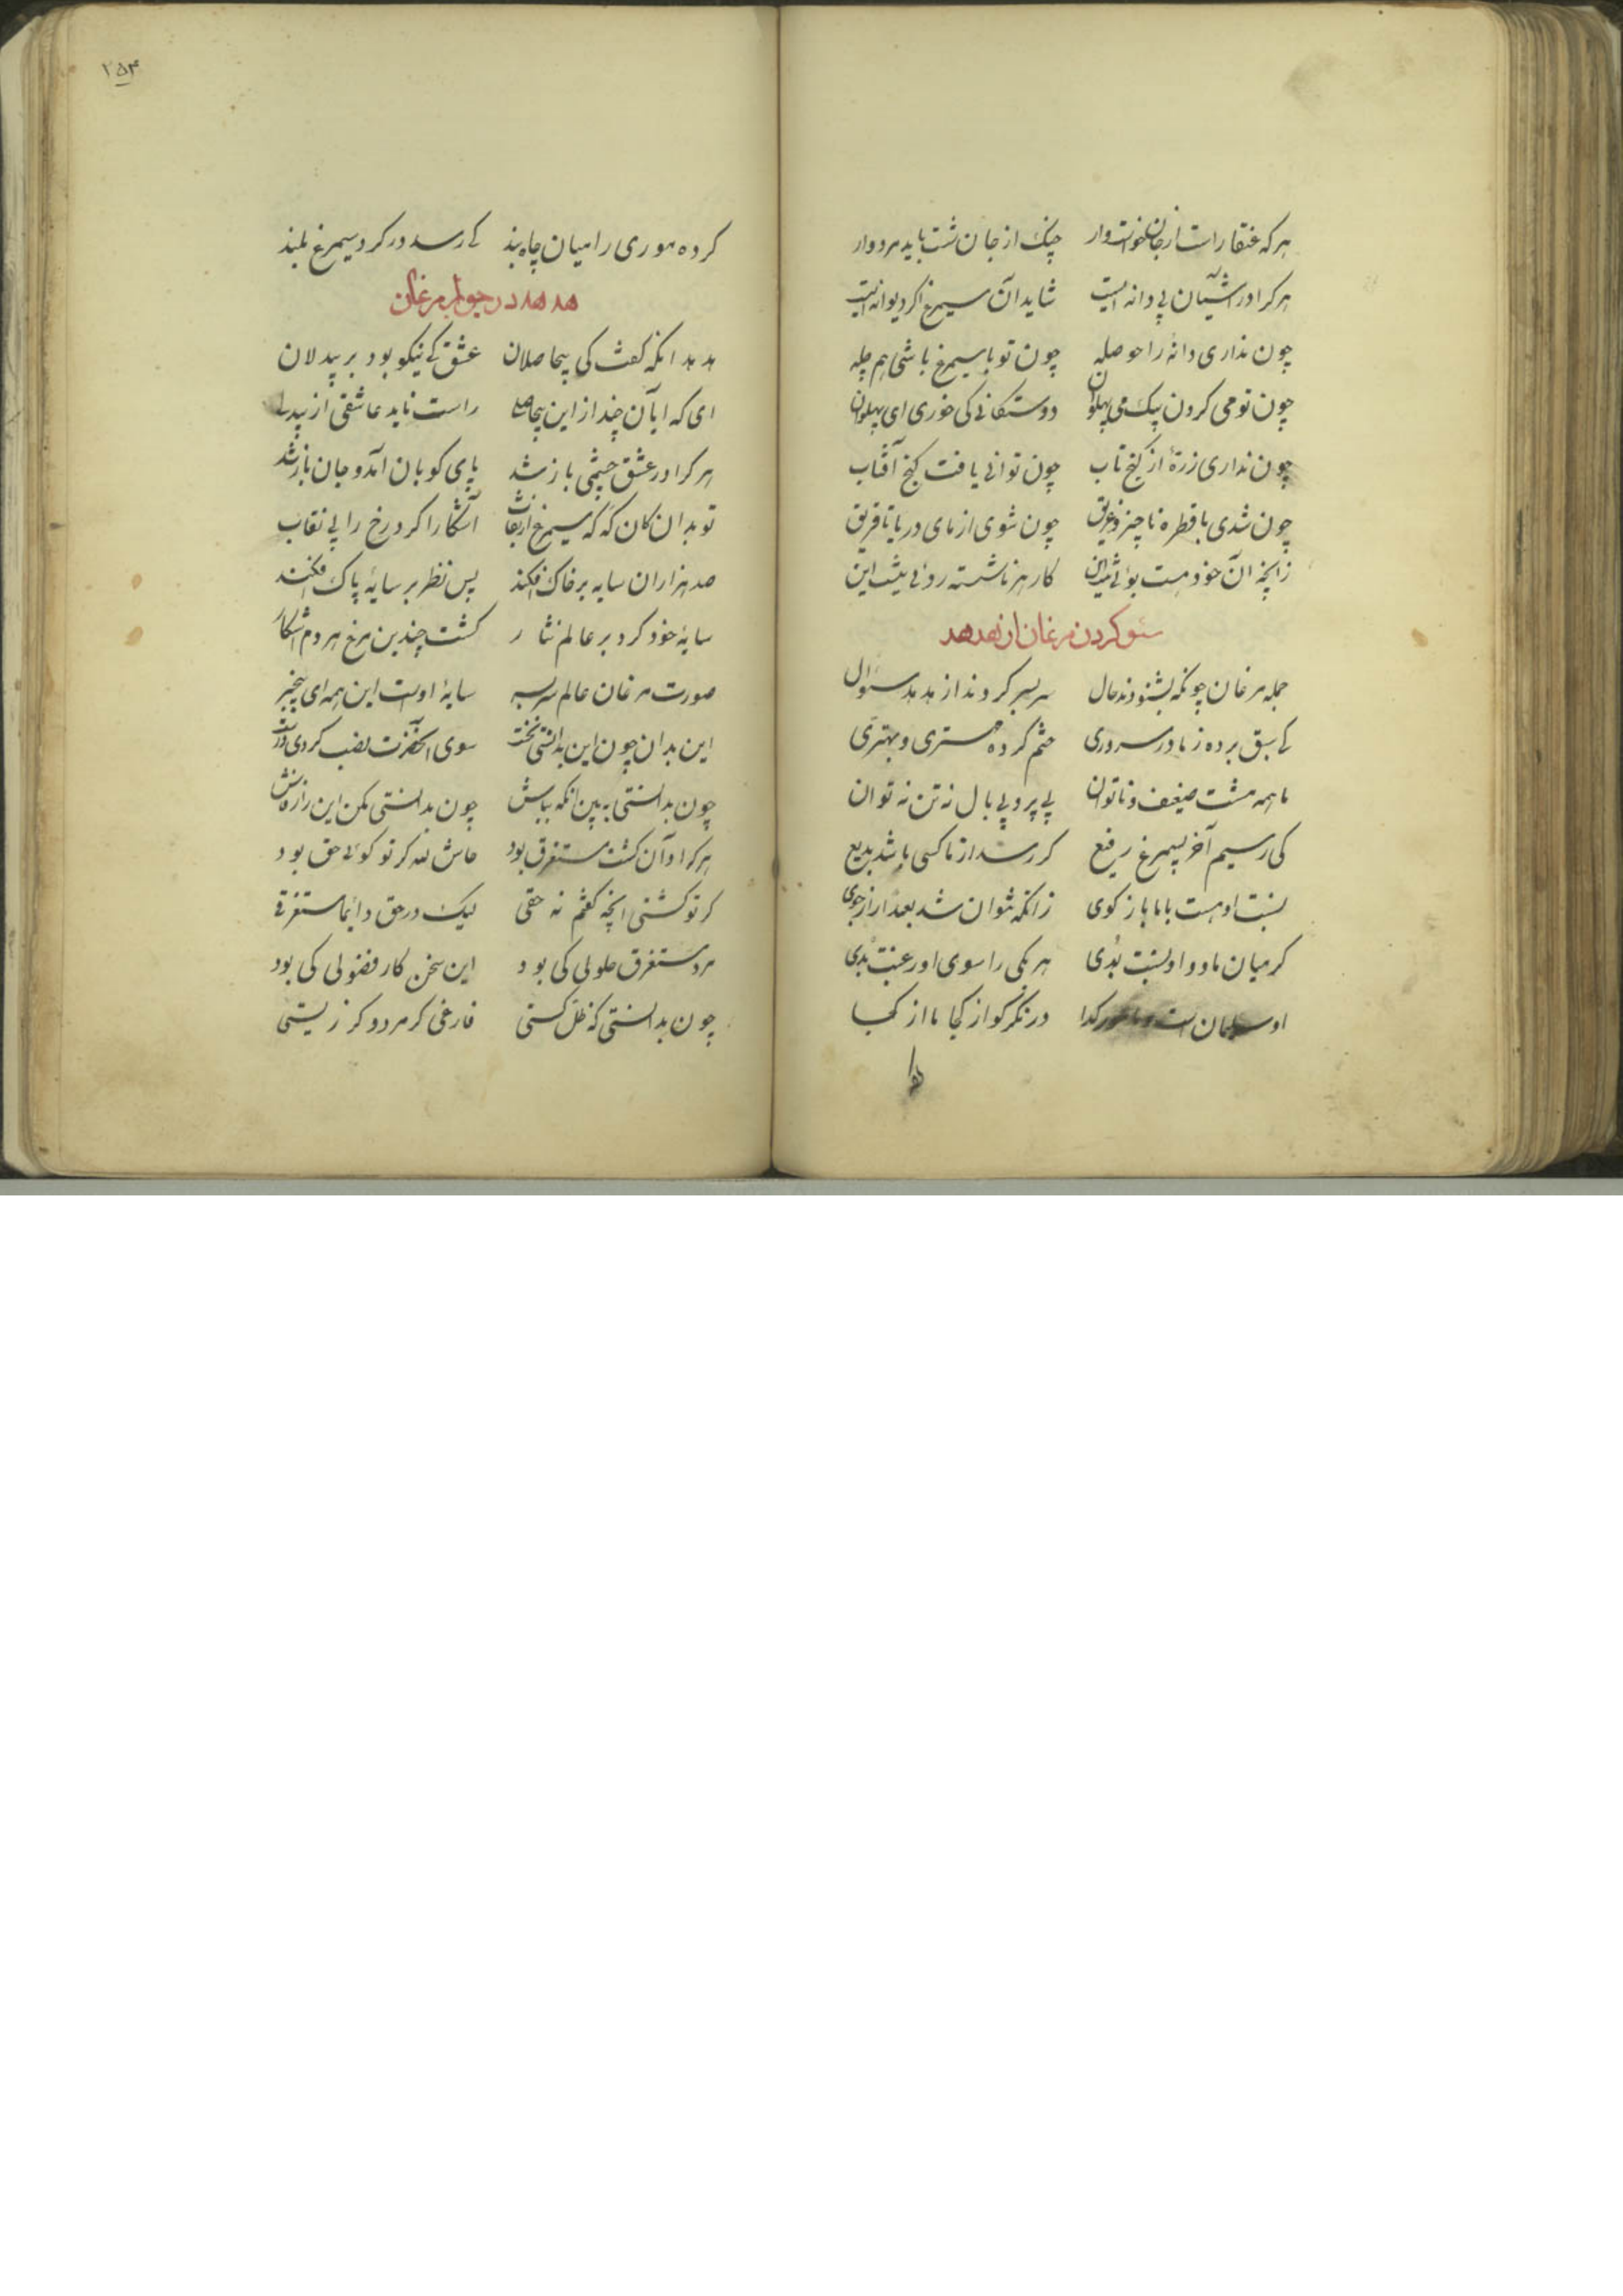 هر که عنقا راست از جان خواستار چنک از جان شست باید مردوار
هر کرا در آشیان پی دانه ایست شاید آن سیمرغ اگر دیوانه ایست
چون نداری دانه را حوصله چون تو با سیمرغ باشی هم چله
چون تو می کردن پیک می پهلوان دوستکانی کی خوری ای پهلوان
چون نداری زره از کنج تاب چون توانی یافت کنج آفتاب
چون شدی با قطره ناچیز و غریق چون شوی از مای دریا تا فریق
زانچه آن خود هست بوئی نیست این کار هر ناشسته روئی نیست این
سئو کردن مرغان از هدهد
جمله مرغان چونکه بشنودند حال سر بسر کردند از هدهد سئوال
کی سبق برده ز ما در سروری ختم کرده مهتری و بهتری
ما همه مشت ضعیف و ناتوان بی پر و بی بال نه تن نه توان
کی رسیم آخر بسیمرغ رفیع کر رسد از ما کسی باشد بدیع
نسبت او هست با ما باز کوی زانکه نتوان شد بعمدا راز جوی
کر میان ما و او نسبت بدی هر یکی را سوی او رغبت بدی
او سلیمان است و ما مور کدا در نکر کو از کجا ما از کجا
۲۵۴
کرده موری را میان چاه بند کی رسد در کرد سیمرغ بلند
هدهد در جواب مرغان
هدهد انکه کفت کی بیحاصلان عشق کی نیکو بود بر بیدلان
ای کدایان چند از این بیحاصلی راست ناید عاشقی از بیدلی
هر کرا در عشق چشمی باز شد پای کوبان آمد و جان باز شد
تو بدان کان که که سیمرغ از نقاب آشکارا کرد رخ را بی نقاب
صد هزاران سایه بر خاک افکند پس نظر بر سایهٔ پاک افکند
سایهٔ خود کرد بر عالم نثار کشت چندین مرغ هر دم آشکار
صورت مرغان عالم سر بسر سایهٔ اوست این همه ای بیخبر
این بدان چون این بدانستی نخست سوی آنحضرت نسب کردی درست
چون بدانستی به بین آنکه بباش چون بدانستی مکن این راز فاش
هر کرا او آن کشت مستغرق بود حاش لله کر تو کوئی حق بود
کر تو کشتی انچه کفتم نه حقی لیک در حق دائما مستغرقی
مرد مستغرق حلولی کی بود این سخن کار فضولی کی بود
چون بدانستی که ظل کیستی فارغی کر مردو کر زیستی